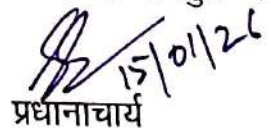 15/01/26
प्रधानाचार्य